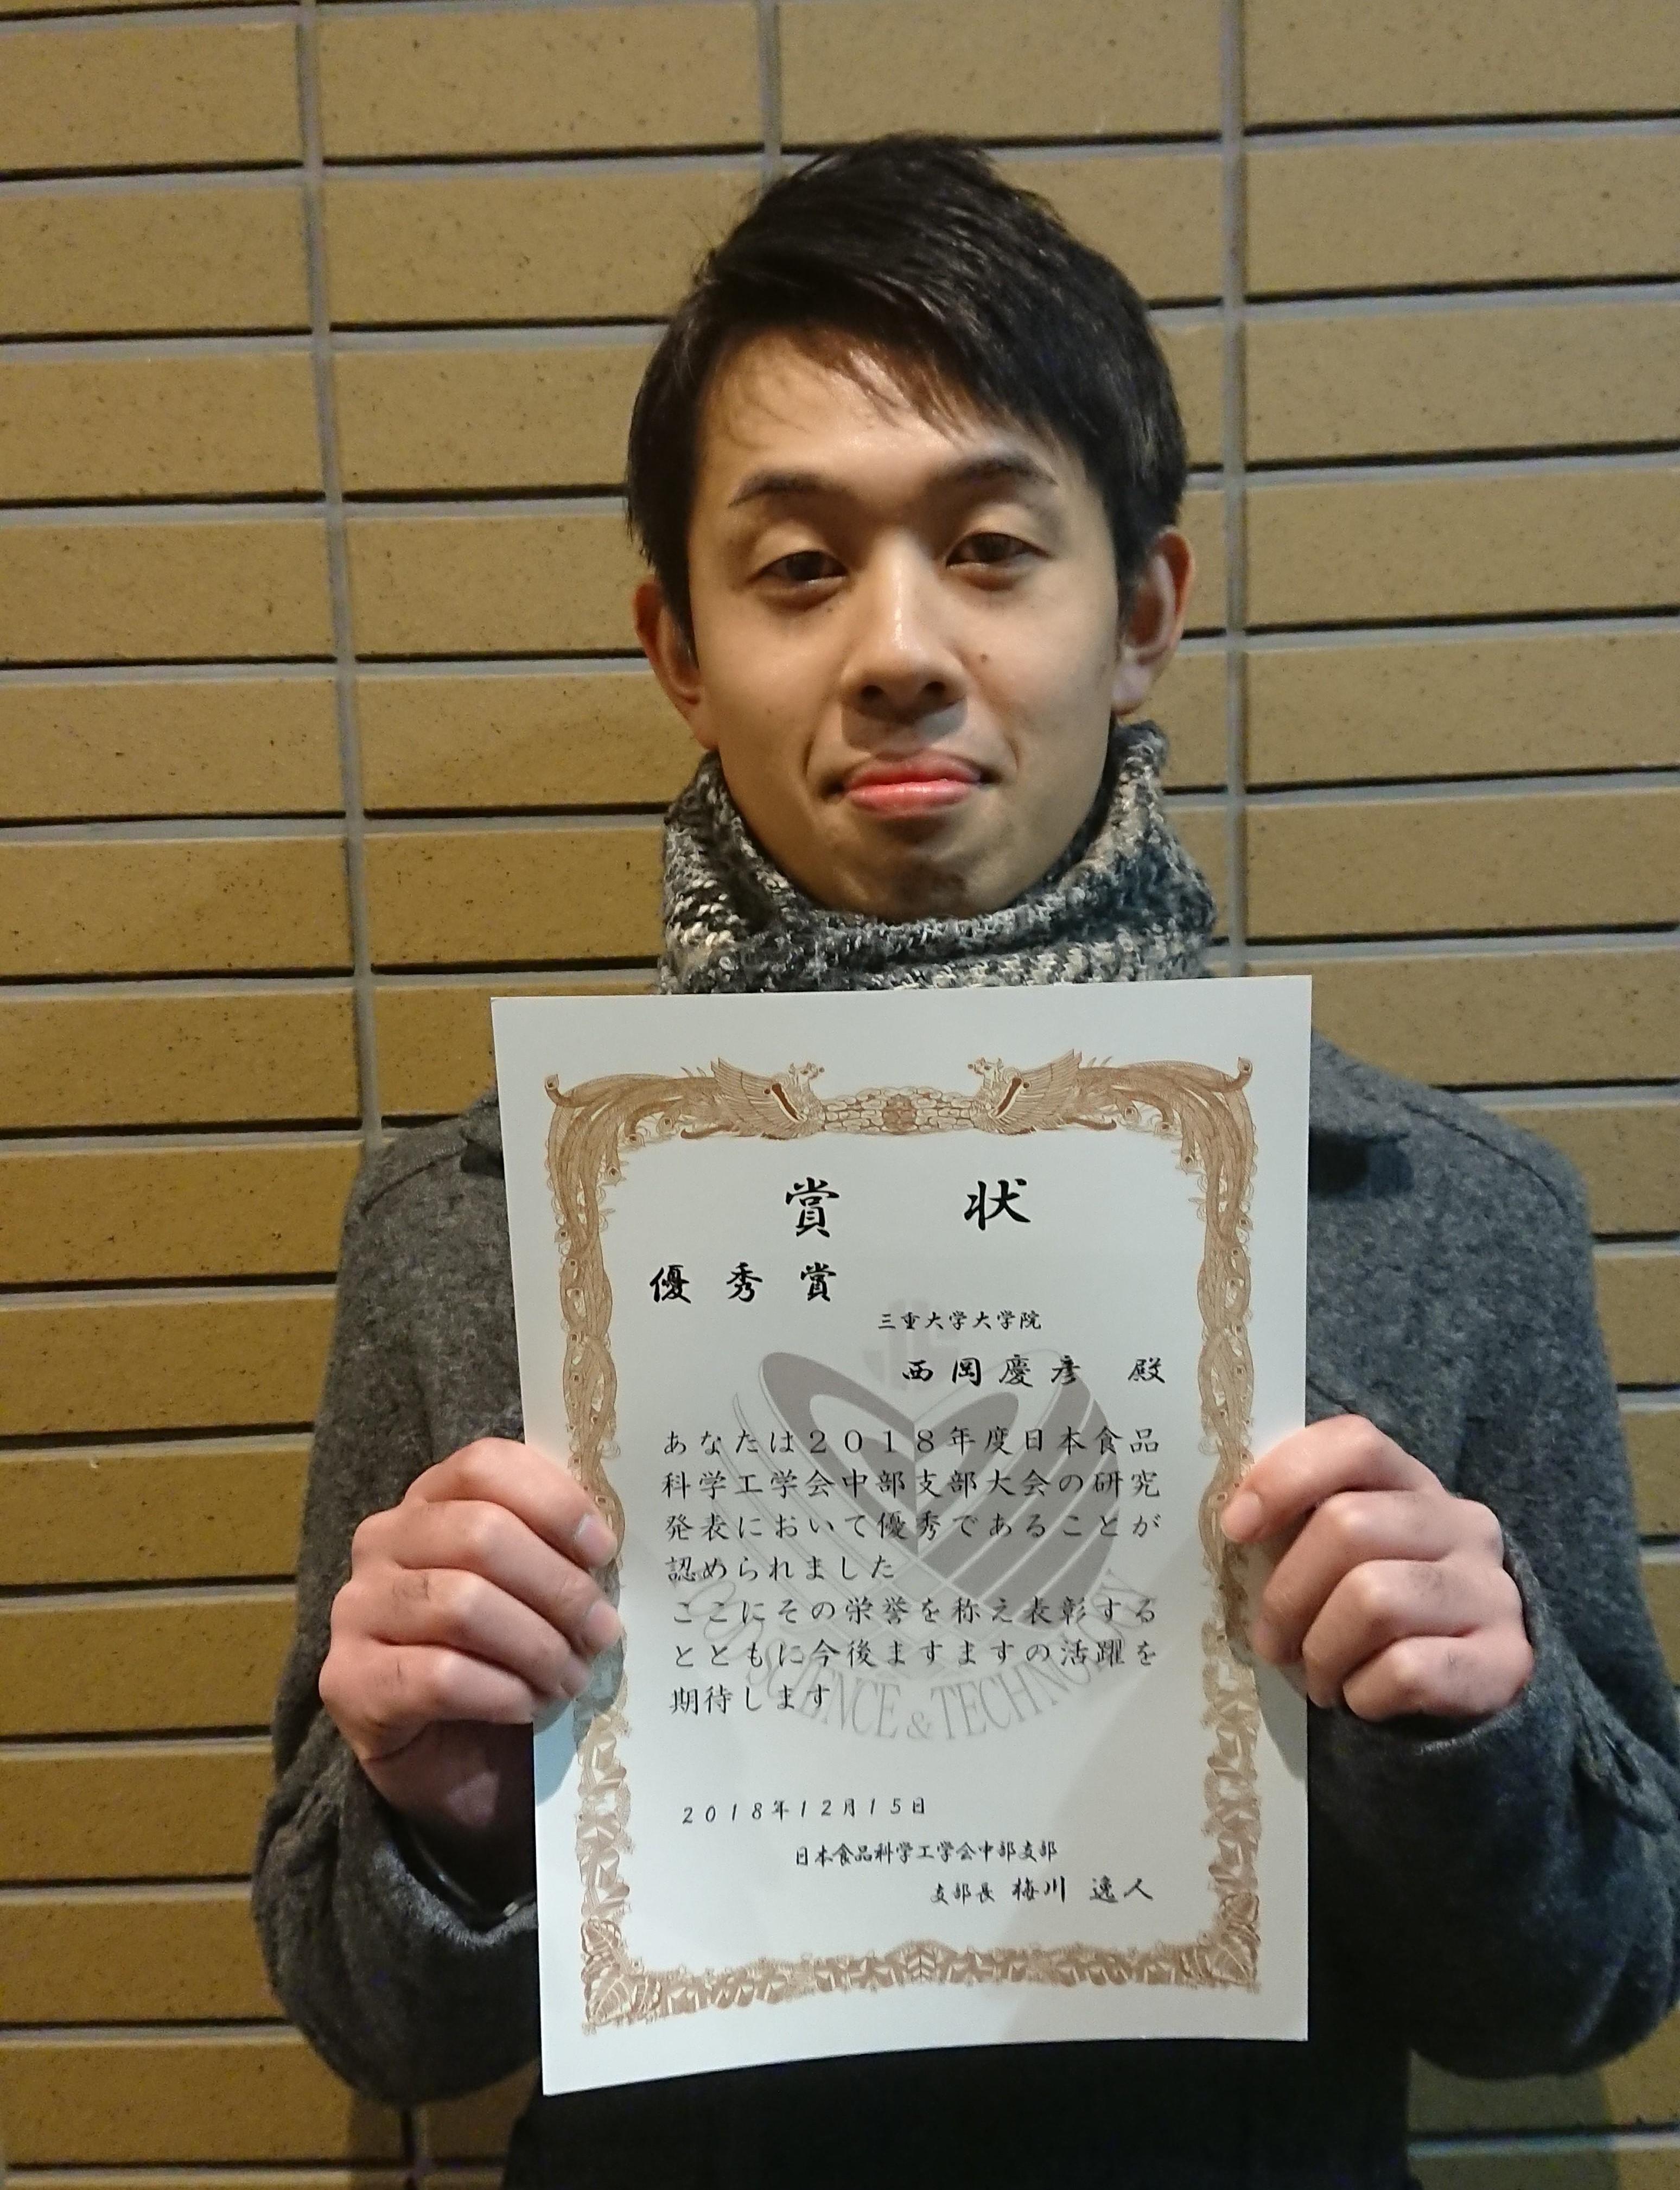 賞状
優秀賞
三重大学大学院
西岡慶彦 殿
あなたは2018年度日本食品
科学工学会中部支部大会の研究
発表において優秀であることが
認められました
ここにその栄誉を称え表彰する
とともに今後ますますの活躍を
期待します
SCIENCE & TECHNOLOGY
2018年12月15日
日本食品科学工学会中部支部
支部長 梅川 逸人